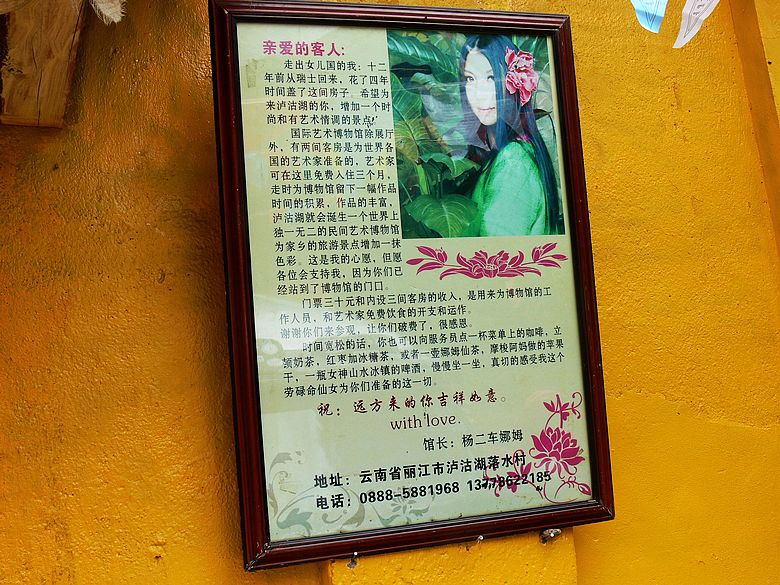 亲爱的客人:
走出女儿国的我: 十二
年前从瑞士回来, 花了四年
时间盖了这间房子。希望为
来泸沽湖的你, 增加一个时
尚和有艺术情调的景点!
国际艺术博物馆除展厅
外, 有两间客房是为世界各
国的艺术家准备的, 艺术家
可在这里免费入住三个月,
走时为博物馆留下一幅作品
时间的积累, 作品的丰富,
泸沽湖就会诞生一个世界上
独一无二的民间艺术博物馆
为家乡的旅游景点增加一抹
色彩。这是我的心愿, 但愿
各位会支持我, 因为你们已
经站到了博物馆的门口。
门票三十元和内设三间客房的收入, 是用来为博物馆的工
作人员, 和艺术家免费饮食的开支和运作。
谢谢你们来参观, 让你们破费了, 很感恩。
时间宽松的话, 你也可以向服务员点一杯菜单上的咖啡, 立
顿奶茶, 红枣加冰糖茶, 或者一壶娜姆仙茶, 摩梭阿妈做的苹果
干, 一瓶女神山水冰镇的啤酒, 慢慢坐一坐, 真切的感受我这个
劳碌命仙女为你们准备的这一切。
祝: 远方来的你吉祥如意。
with love.
馆长: 杨二车娜姆
地址: 云南省丽江市泸沽湖落水村
电话: 0888-5881968